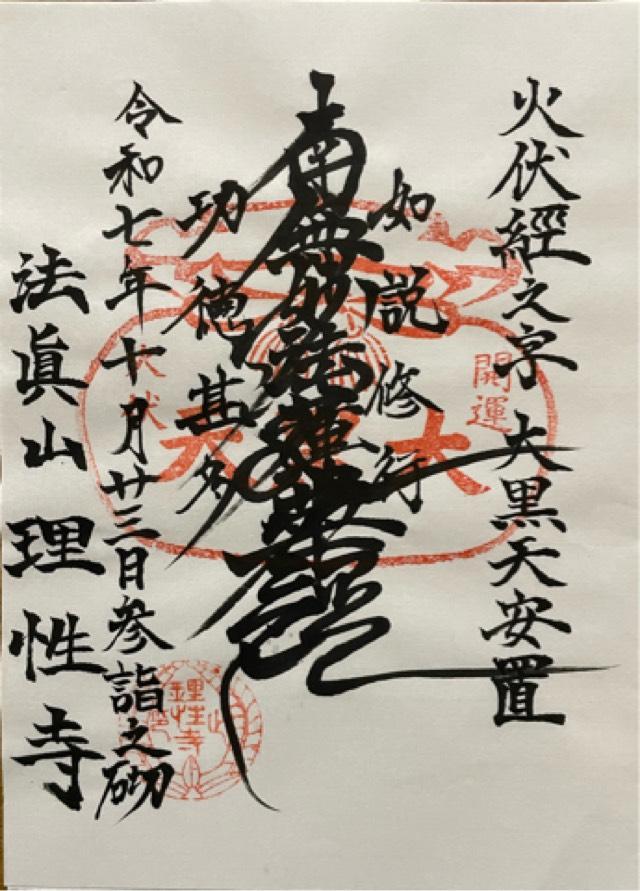 火伏經文字 大黒天安置
如説修行
南無妙法蓮華經
功徳甚多
令和七年十月廿三日参詣之砌
法眞山 理性寺
開運
大黒天
火伏
理性寺